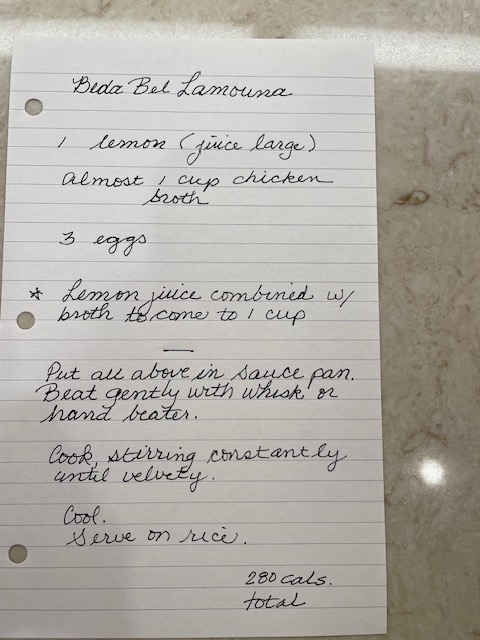 Beda Bel Lamouna
1 lemon (juice large)
almost 1 cup chicken
broth
3 eggs
* Lemon juice combined w/
broth to come to 1 cup
—
Put all above in sauce pan.
Beat gently with whisk or
hand beater.
Cook, stirring constantly
until velvety.
Cool.
Serve on rice.
280 cals.
total